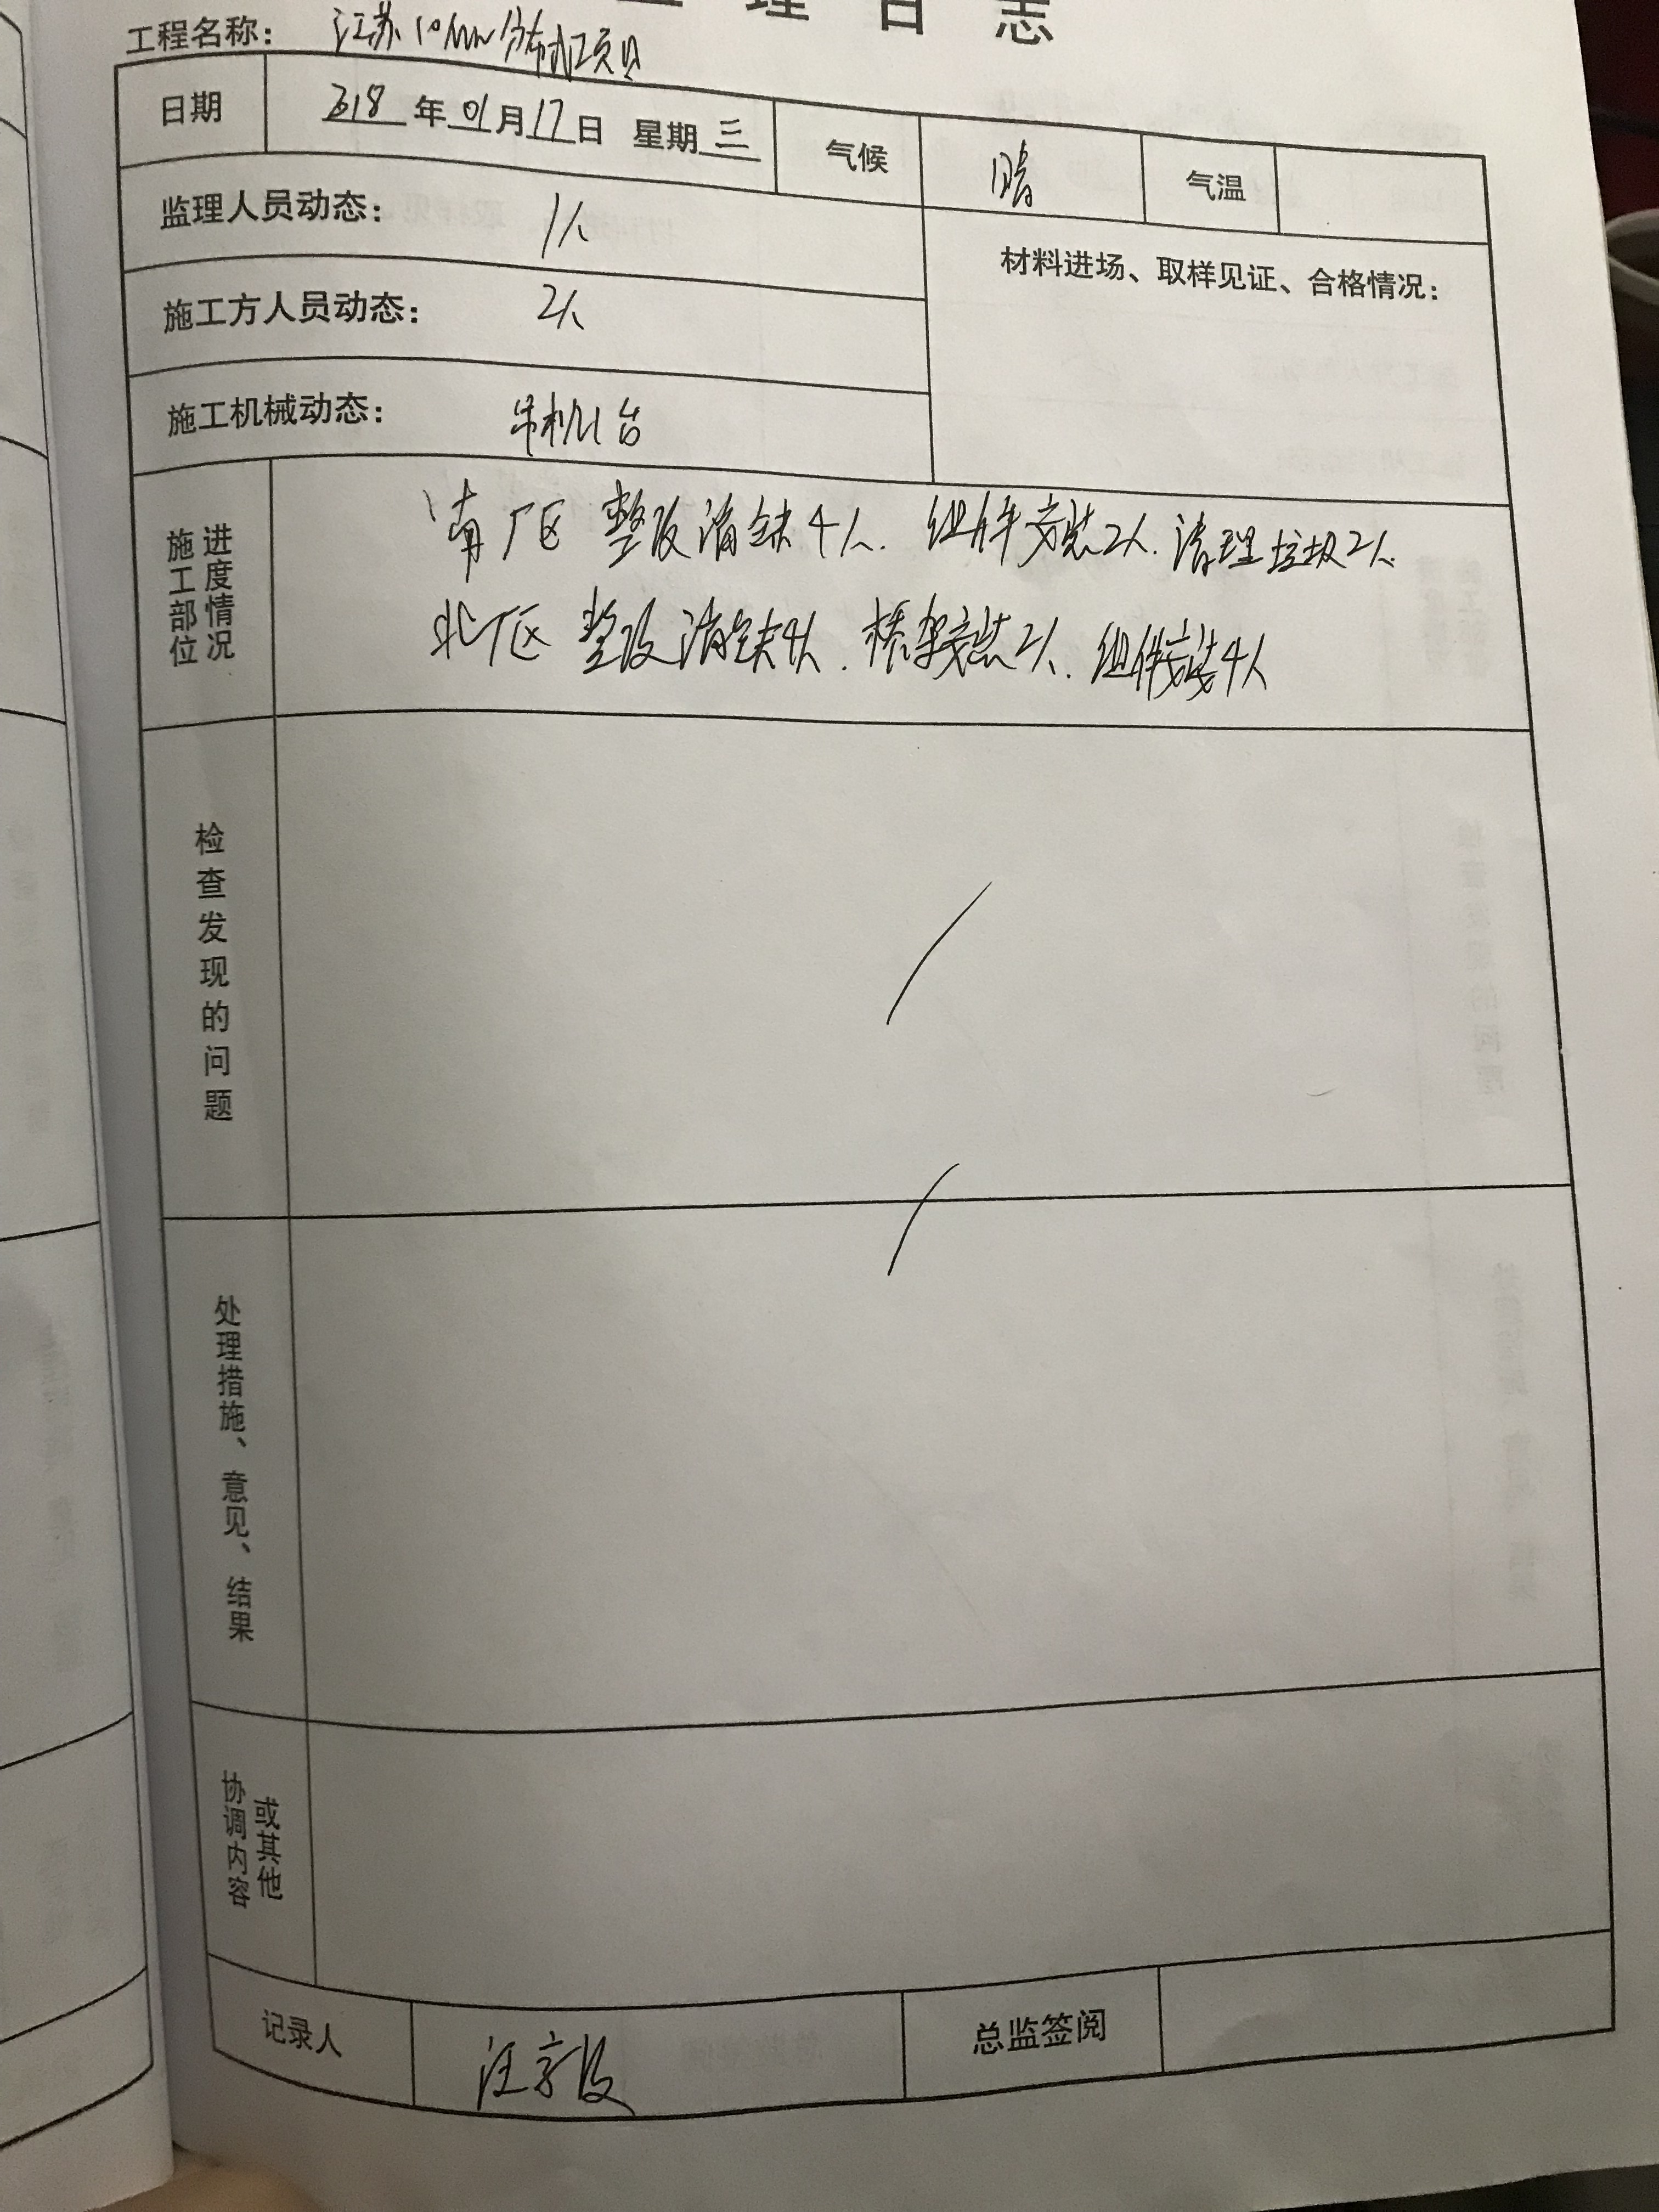 监理日志
工程名称： 江苏10MW分布式项目
日期 2018年01月17日 星期三 气候 晴 气温
监理人员动态： 1人
材料进场、取样见证、合格情况：
施工方人员动态： 2人
施工机械动态： 吊机1台
施工部位进度情况
南厂区 整改消缺4人. 组件安装2人. 清理垃圾2人
北厂区 整改消缺4人. 桥架安装2人. 组件安装4人
检查发现的问题 /
处理措施、意见、结果 /
协调内容或其他
记录人 汪 总监签阅